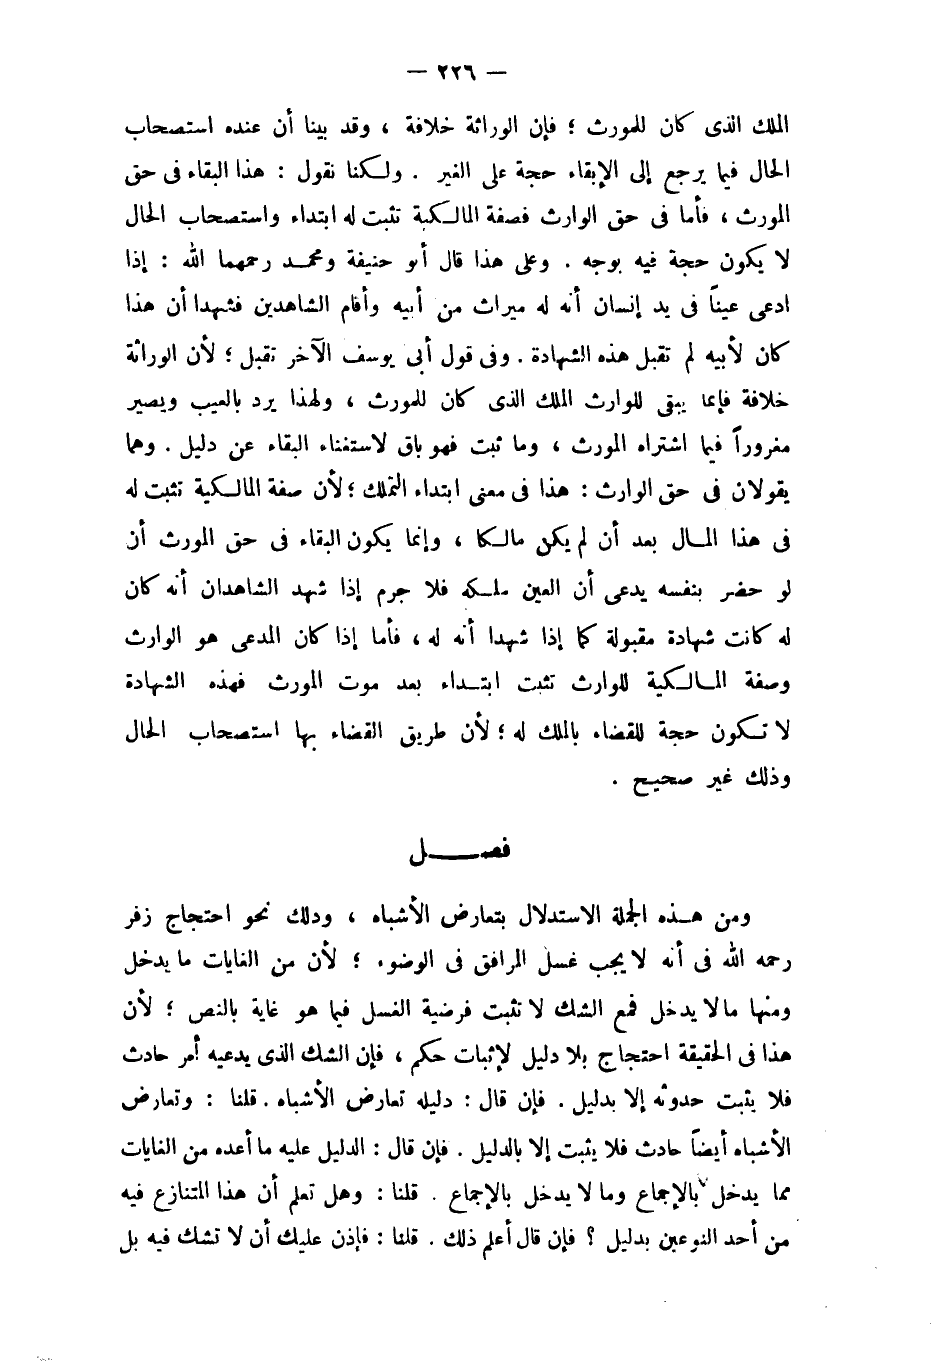 — ٢٢٦ —
الملك الذى كان للمورث ؛ فإن الوراثة خلافة ، وقد بينا أن عنده استصحاب
الحال فيما يرجع إلى الإبقاء حجة على الغير . ولكنا نقول : هذا البقاء فى حق
المورث ، فأما فى حق الوارث فصفة المالكية تثبت له ابتداء واستصحاب الحال
لا يكون حجة فيه بوجه . وعلى هذا قال أبو حنيفة ومحمد رحمهما الله : إذا
ادعى عيناً فى يد إنسان أنه له ميراث من أبيه وأقام الشاهدين فشهدا أن هذا
كان لأبيه لم تقبل هذه الشهادة . وفى قول أبى يوسف الآخر تقبل ؛ لأن الوراثة
خلافة فإنما يبقى للوارث الملك الذى كان للمورث ، ولهذا يرد بالعيب ويصير
مغروراً فيما اشتراه المورث ، وما ثبت فهو باق لاستغناء البقاء عن دليل . وهما
يقولان فى حق الوارث : هذا فى معنى ابتداء التملك ؛ لأن صفة المالكية تثبت له
فى هذا المال بعد أن لم يكن مالكا ، وإنما يكون البقاء فى حق المورث أن
لو حضر بنفسه يدعى أن العين ملكه فلا جرم إذا شهد الشاهدان أنه كان
له كانت شهادة مقبولة كما إذا شهدا أنه له ، فأما إذا كان المدعى هو الوارث
وصفة المالكية للوارث تثبت ابتداء بعد موت المورث فهذه الشهادة
لا تكون حجة للقضاء بالملك له ؛ لأن طريق القضاء بها استصحاب الحال
وذلك غير صحيح .
فصل
ومن هذه الجملة الاستدلال بتعارض الأشباه ، وذلك نحو احتجاج زفر
رحمه الله فى أنه لا يجب غسل المرافق فى الوضوء ؛ لأن من الغايات ما يدخل
ومنها مالا يدخل فمع الشك لا تثبت فرضية الغسل فيما هو غاية بالنص ؛ لأن
هذا فى الحقيقة احتجاج بلا دليل لإثبات حكم ، فإن الشك الذى يدعيه أمر حادث
فلا يثبت حدوثه إلا بدليل . فإن قال : دليله تعارض الأشباه . قلنا : وتعارض
الأشباه أيضاً حادث فلا يثبت إلا بالدليل . فإن قال : الدليل عليه ما أعده من الغايات
مما يدخل بالإجماع وما لا يدخل بالإجماع . قلنا : وهل تعلم أن هذا المتنازع فيه
من أحد النوعين بدليل ؟ فإن قال أعلم ذلك . قلنا : فإذن عليك أن لا تشك فيه بل